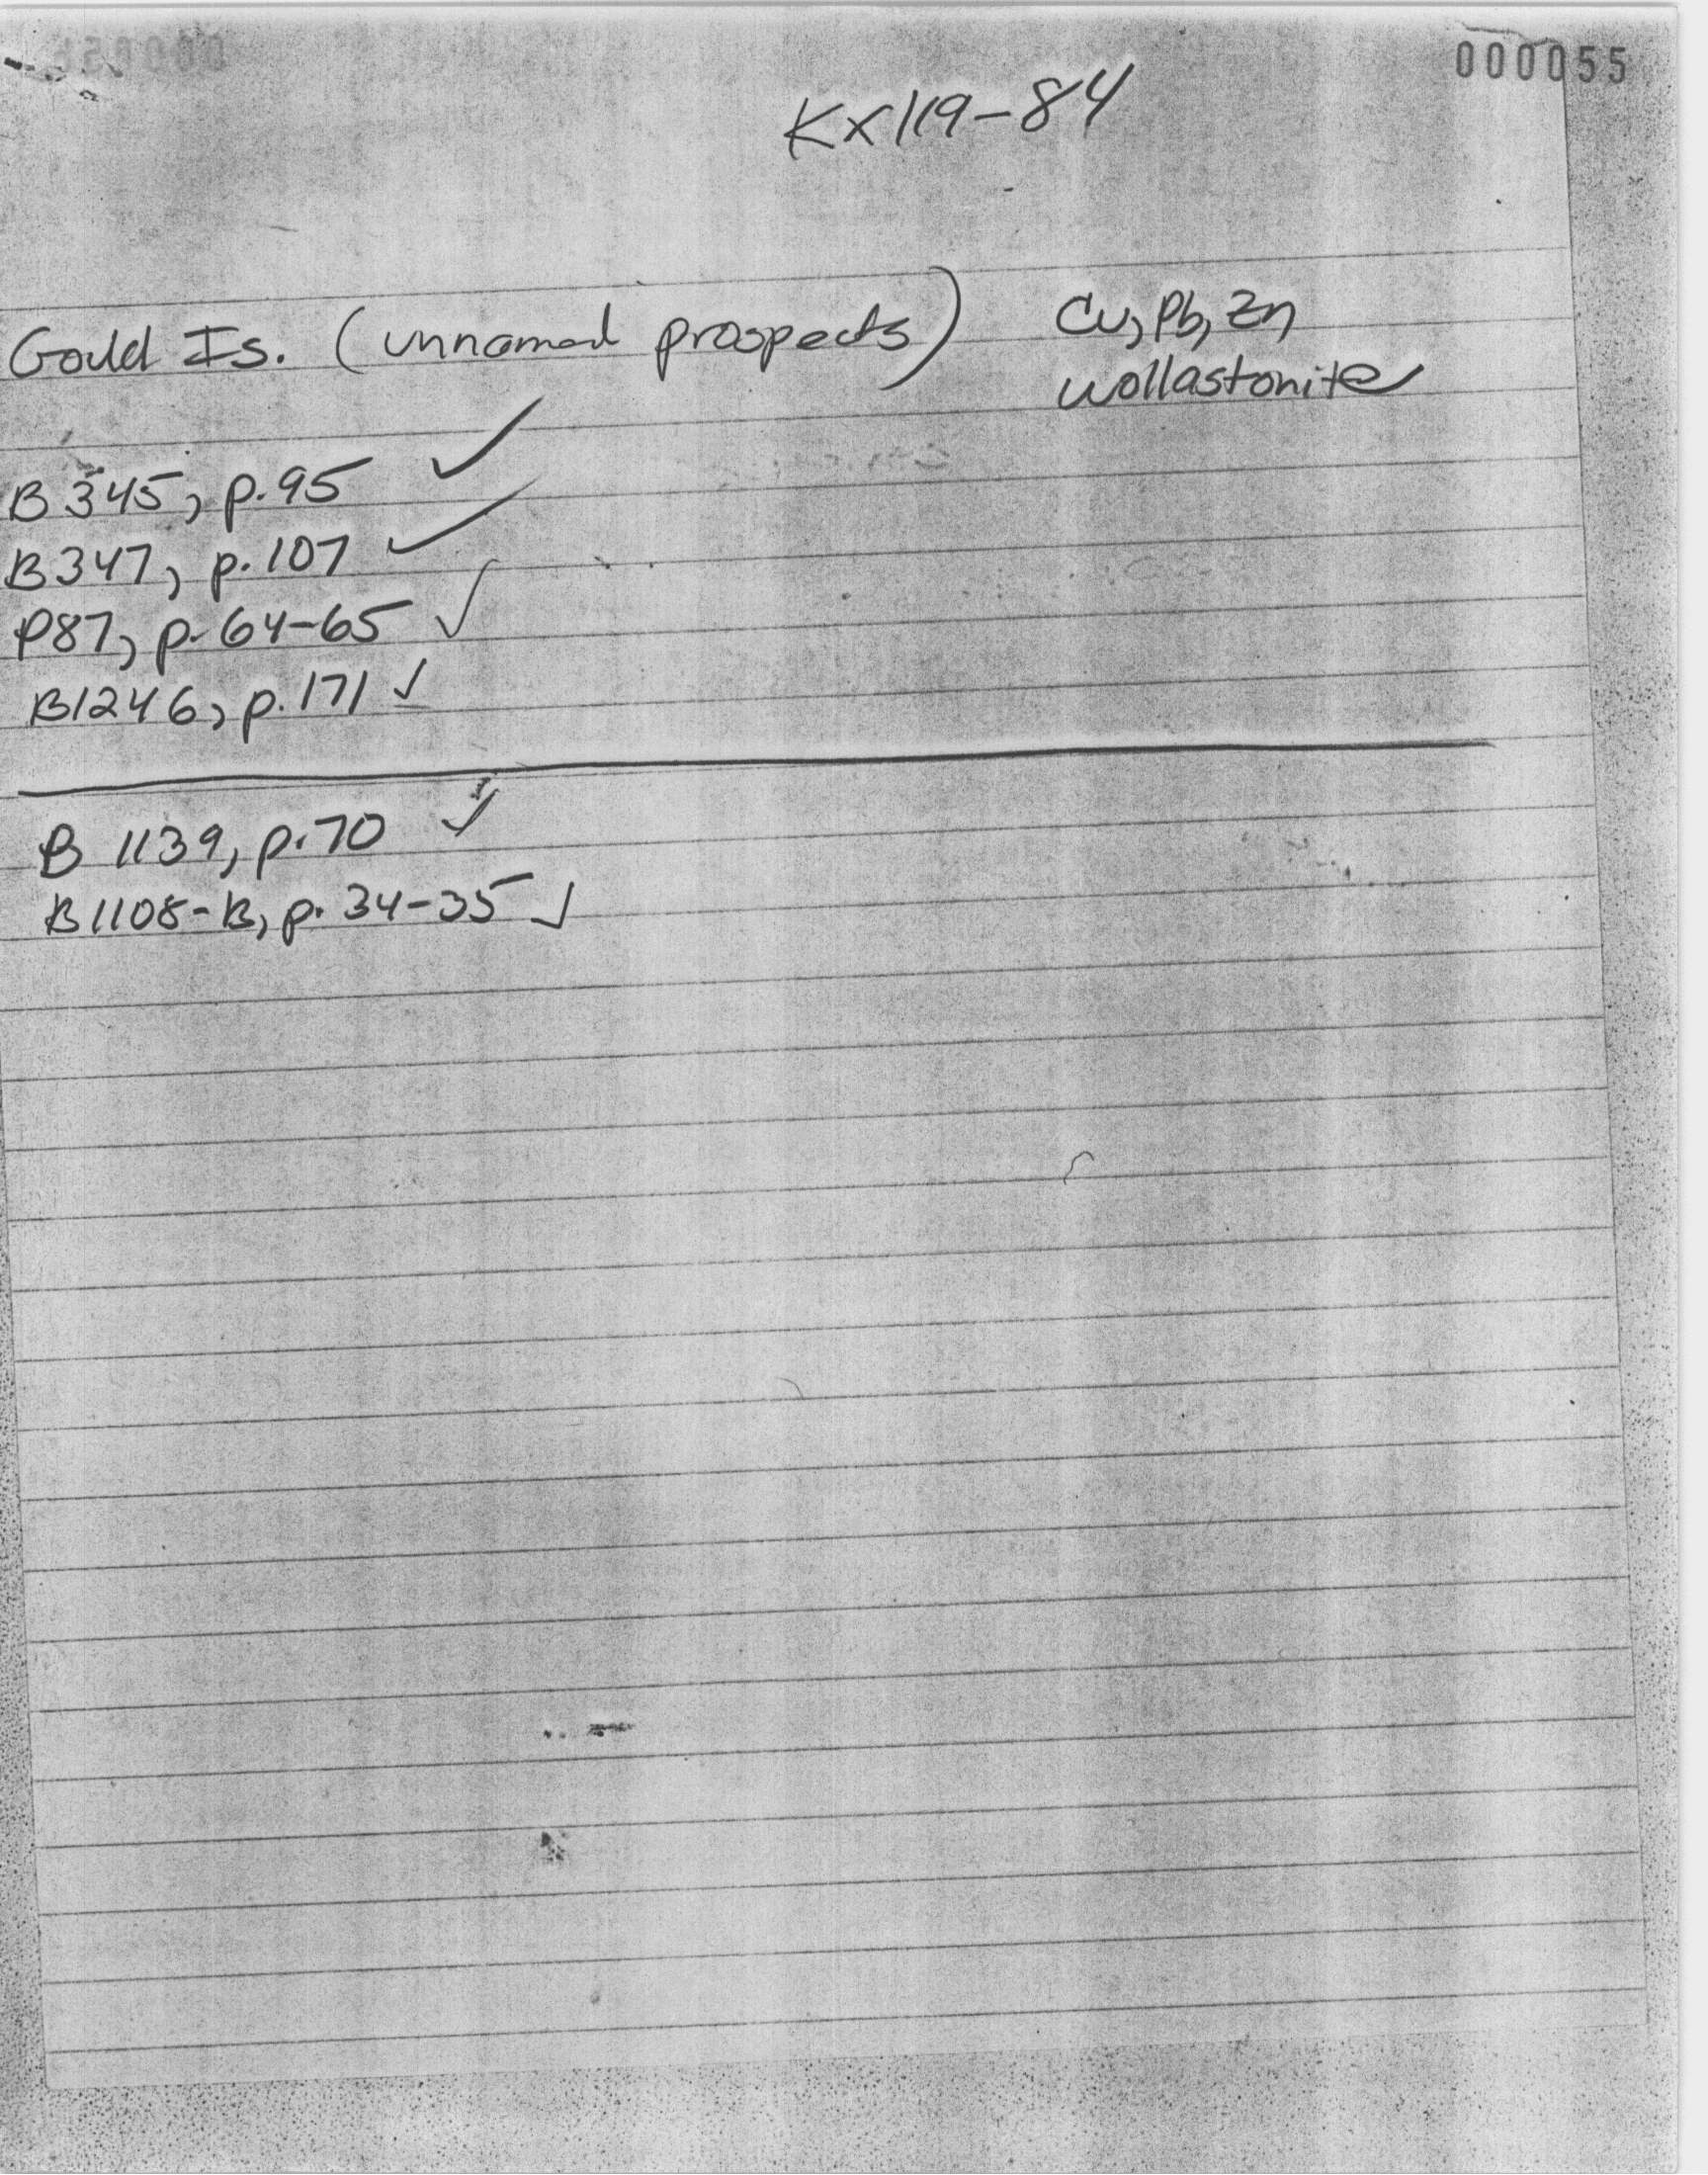 000055
Kx119-84
Gould Is. (unnamed prospects) Cu, Pb, Zn
wollastonite
B 345, p.95 ✓
B347, p.107 ✓
P87, p. 64-65 ✓
B1246, p.171 ✓
B 1139, p.70 ✓
B1108-B, p. 34-35 ✓